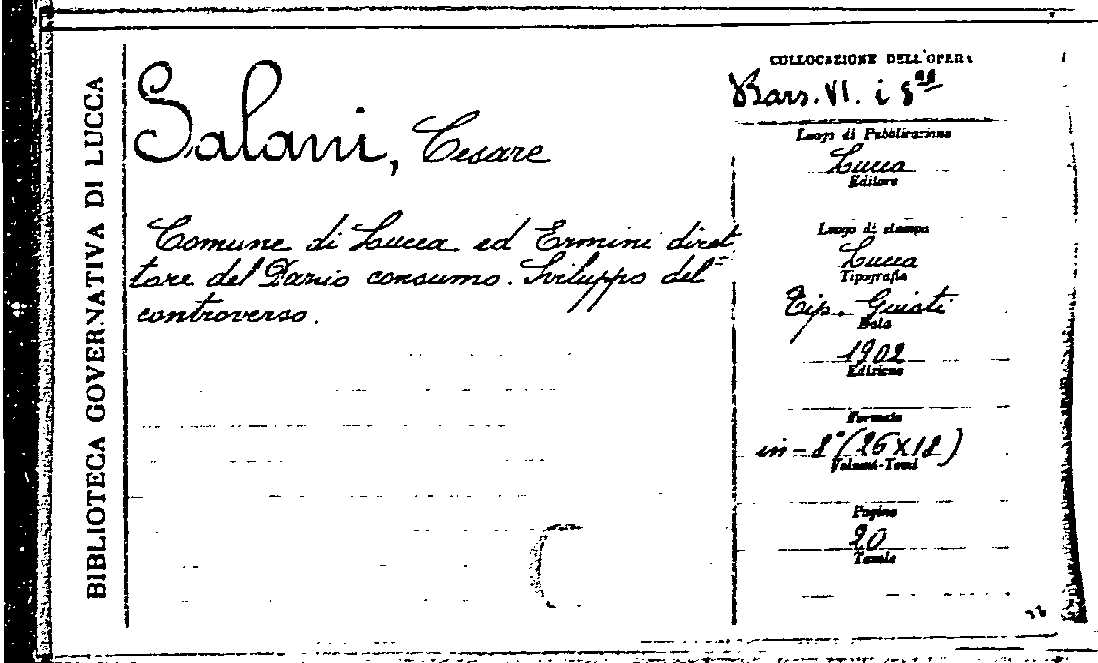 BIBLIOTECA GOVERNATIVA DI LUCCA
Salani, Cesare
Comune di Lucca ed Ermini diret
tore del Dazio consumo. Sviluppo del
controverso.
COLLOCAZIONE DELL'OPERA
Bars. VI. i 8
Luogo di Pubblicazione
Lucca
Editore
Luogo di stampa
Lucca
Tipografia
Tip. Guisti
Data
1902
Edizione
Formato
in-8° (26X18)
Volumi-Tomi
Pagine
20
Tavole